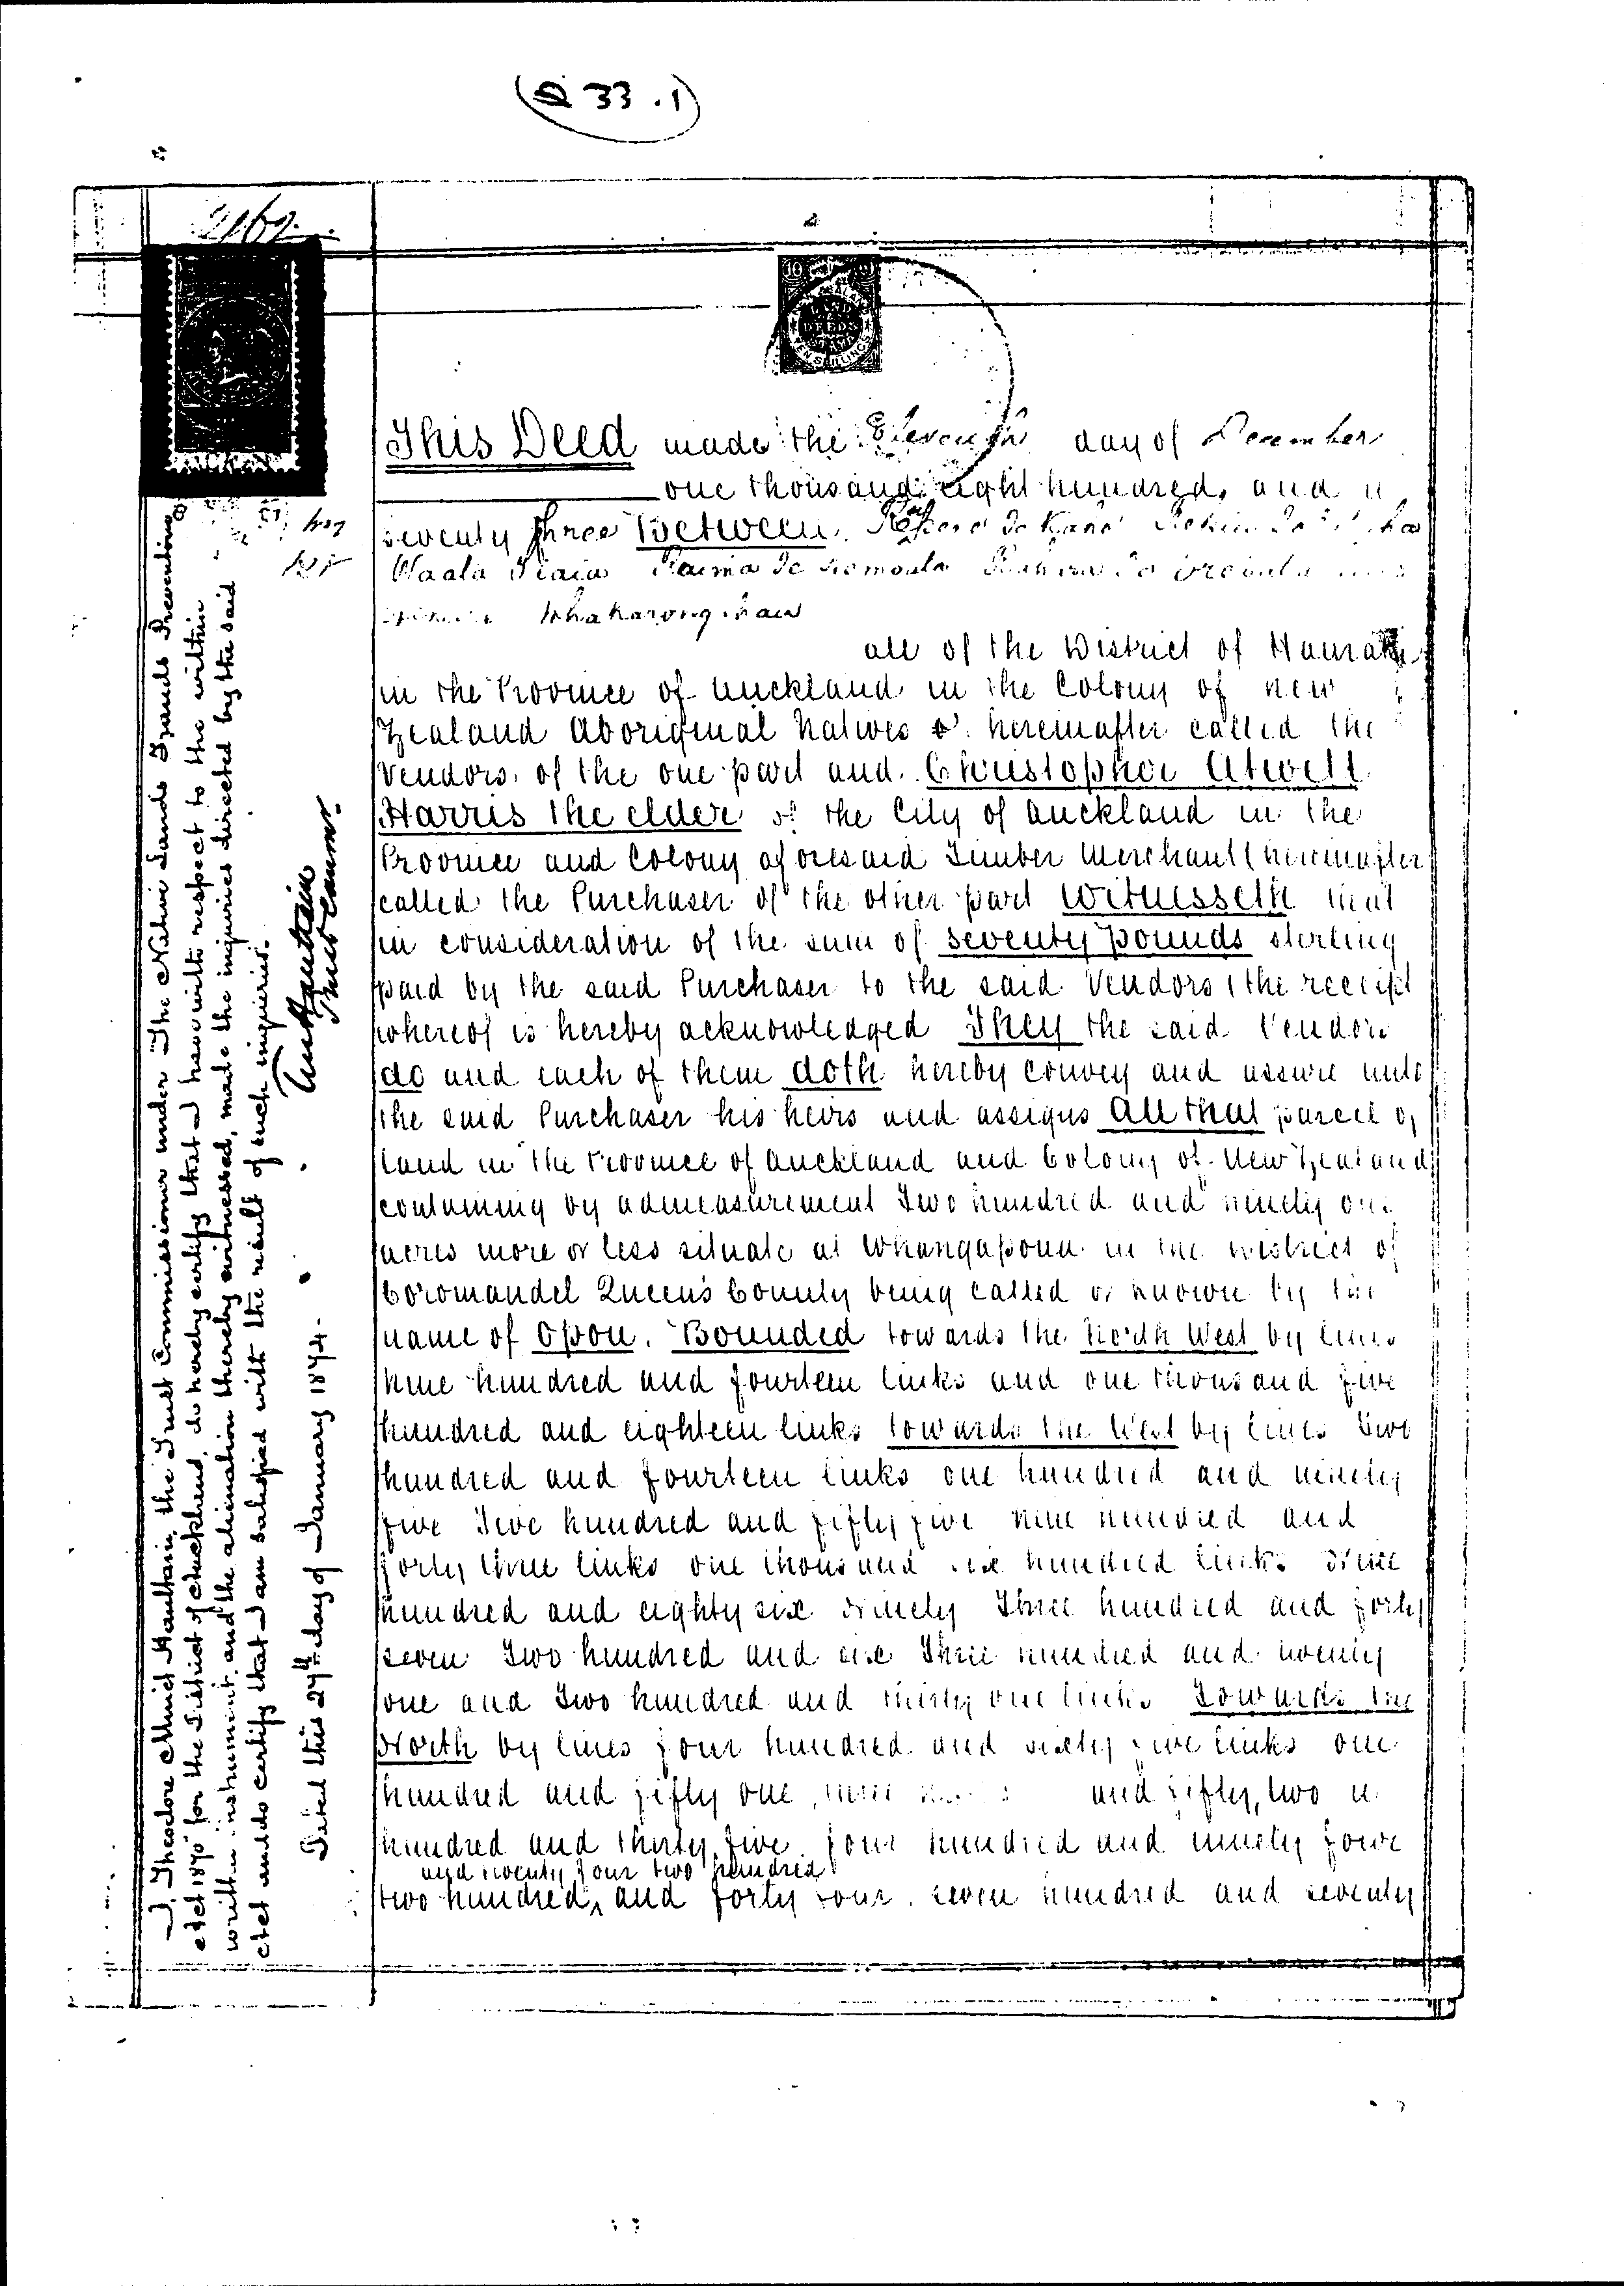 (Q 33 . 1)
2162
LAND
DEEDS
TEN SHILLINGS
This Deed made the Eleventh day of December
one thousand eight hundred and
seventy three Between Te Kane
Waata Tiaia
Whakarongonau
all of the District of Hauraki
in the Province of Auckland in the Colony of New
Zealand Aboriginal Natives hereinafter called the
Vendors of the one part and Christopher Atwell
Harris the elder of the City of Auckland in the
Province and Colony aforesaid Timber Merchant (hereinafter
called the Purchaser of the other part Witnesseth that
in consideration of the sum of seventy pounds sterling
paid by the said Purchaser to the said Vendors (the receipt
whereof is hereby acknowledged They the said Vendors
do and each of them doth hereby convey and assure unto
the said Purchaser his heirs and assigns All that parcel of
land in the Province of Auckland and Colony of New Zealand
containing by admeasurement Two hundred and ninety one
acres more or less situate at Whangapoua in the District of
Coromandel Queen's County being called or known by the
name of Opou. Bounded towards the North West by lines
nine hundred and fourteen links and one thousand five
hundred and eighteen links towards the West by lines two
hundred and fourteen links one hundred and ninety
five Five hundred and fifty five nine hundred and
forty three links one thousand six hundred links three
hundred and eighty six ninety Three hundred and forty
seven Two hundred and six Three hundred and twenty
one and Two hundred and thirty one links Towards the
North by lines four hundred and sixty five links one
hundred and fifty one, and fifty, two
hundred and thirty five four hundred and ninety four
and twenty four two hundred
two hundred and forty four seven hundred and seventy
I, Theodore Minet Haultain, the Trust Commissioner under "The Native Lands Frauds Prevention
Act 1870" for the District of Auckland, do hereby certify that I have with respect to the within
written instrument, and the alienation thereby witnessed, made the inquiries directed by the said
Act and do certify that I am satisfied with the result of such inquiries.
Dated this 27th day of January 1874.
T M Haultain
Trust Commr.